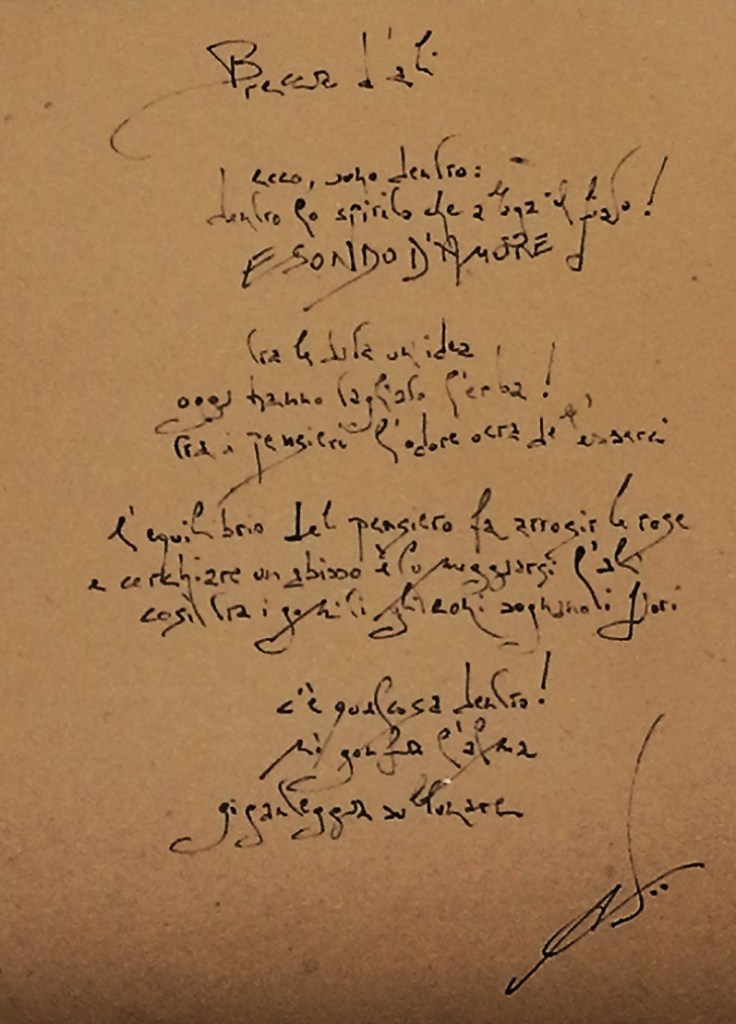 d'ali
ecco, sono dentro:
dentro lo spirito che allaga il
ESONDO D'AMORE
tra le dita un'idea
oggi hanno tagliato l'erba!
tra i pensieri l'odore ocra dell'esserci
l'equilibrio del pensiero fa arrossir le rose
e cerchiare un abisso è lo l'ali
così tra i gomiti gli echi sognano i fiori
c'è qualcosa dentro!
mi gonfia l'alma
giganteggia sul lunare